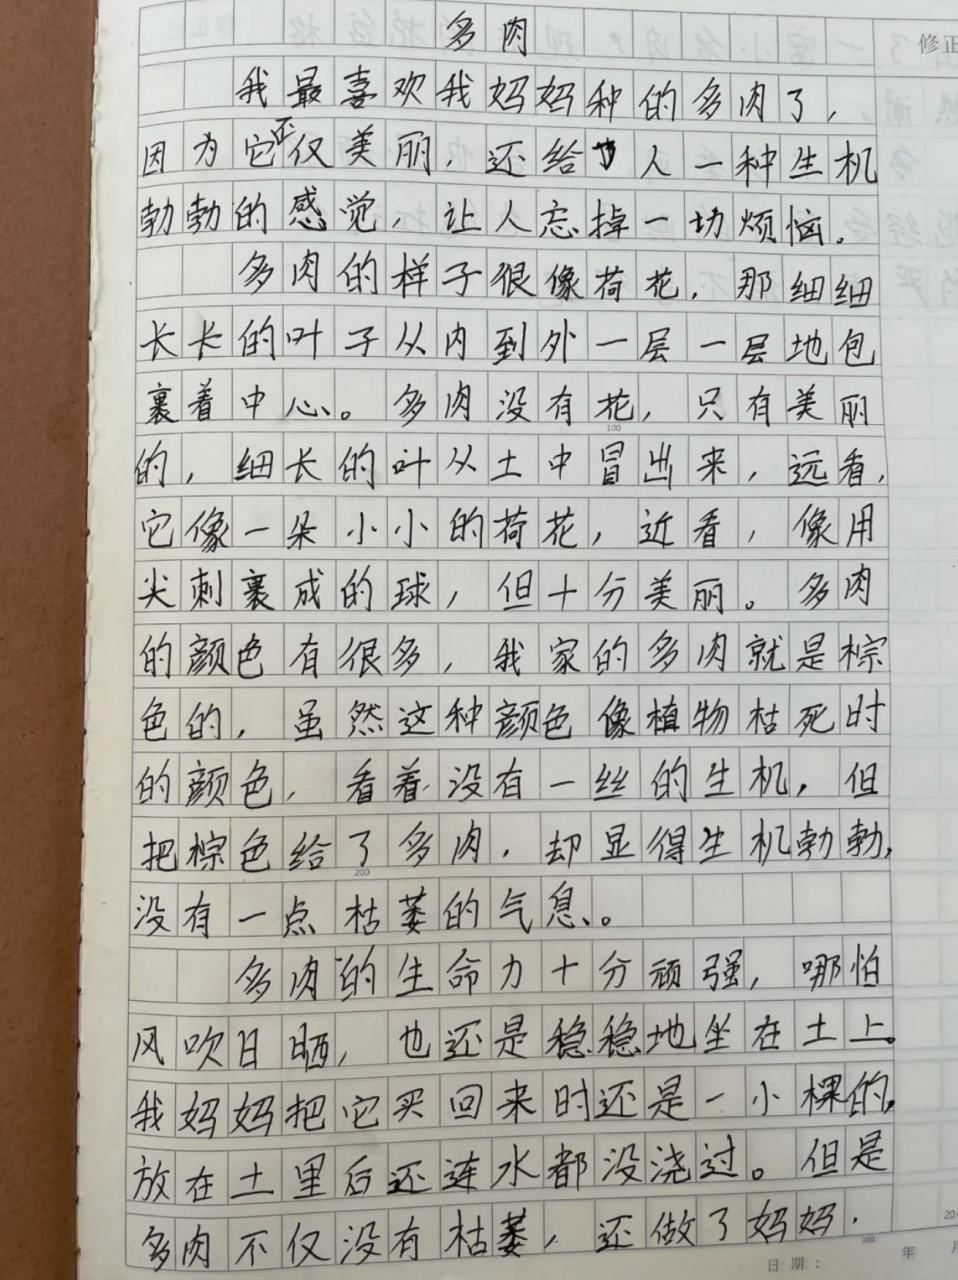 多肉
修正
我最喜欢我妈妈种的多肉了，
因为它不仅美丽，还给了人一种生机
勃勃的感觉，让人忘掉一切烦恼。
多肉的样子很像荷花，那细细
长长的叶子从内到外一层一层地包
裹着中心。多肉没有花，只有美丽
100
的，细长的叶从土中冒出来，远看，
它像一朵小小的荷花，近看，像用
尖刺裹成的球，但十分美丽。多肉
的颜色有很多，我家的多肉就是棕
色的，虽然这种颜色像植物枯死时
的颜色，看着没有一丝的生机，但
把棕色给了多肉，却显得生机勃勃，
200
没有一点枯萎的气息。
多肉的生命力十分顽强，哪怕
风吹日晒，也还是稳稳地坐在土上。
我妈妈把它买回来时还是一小棵的，
放在土里后还连水都没浇过。但是
多肉不仅没有枯萎，还做了妈妈.
300
日期： 年 月